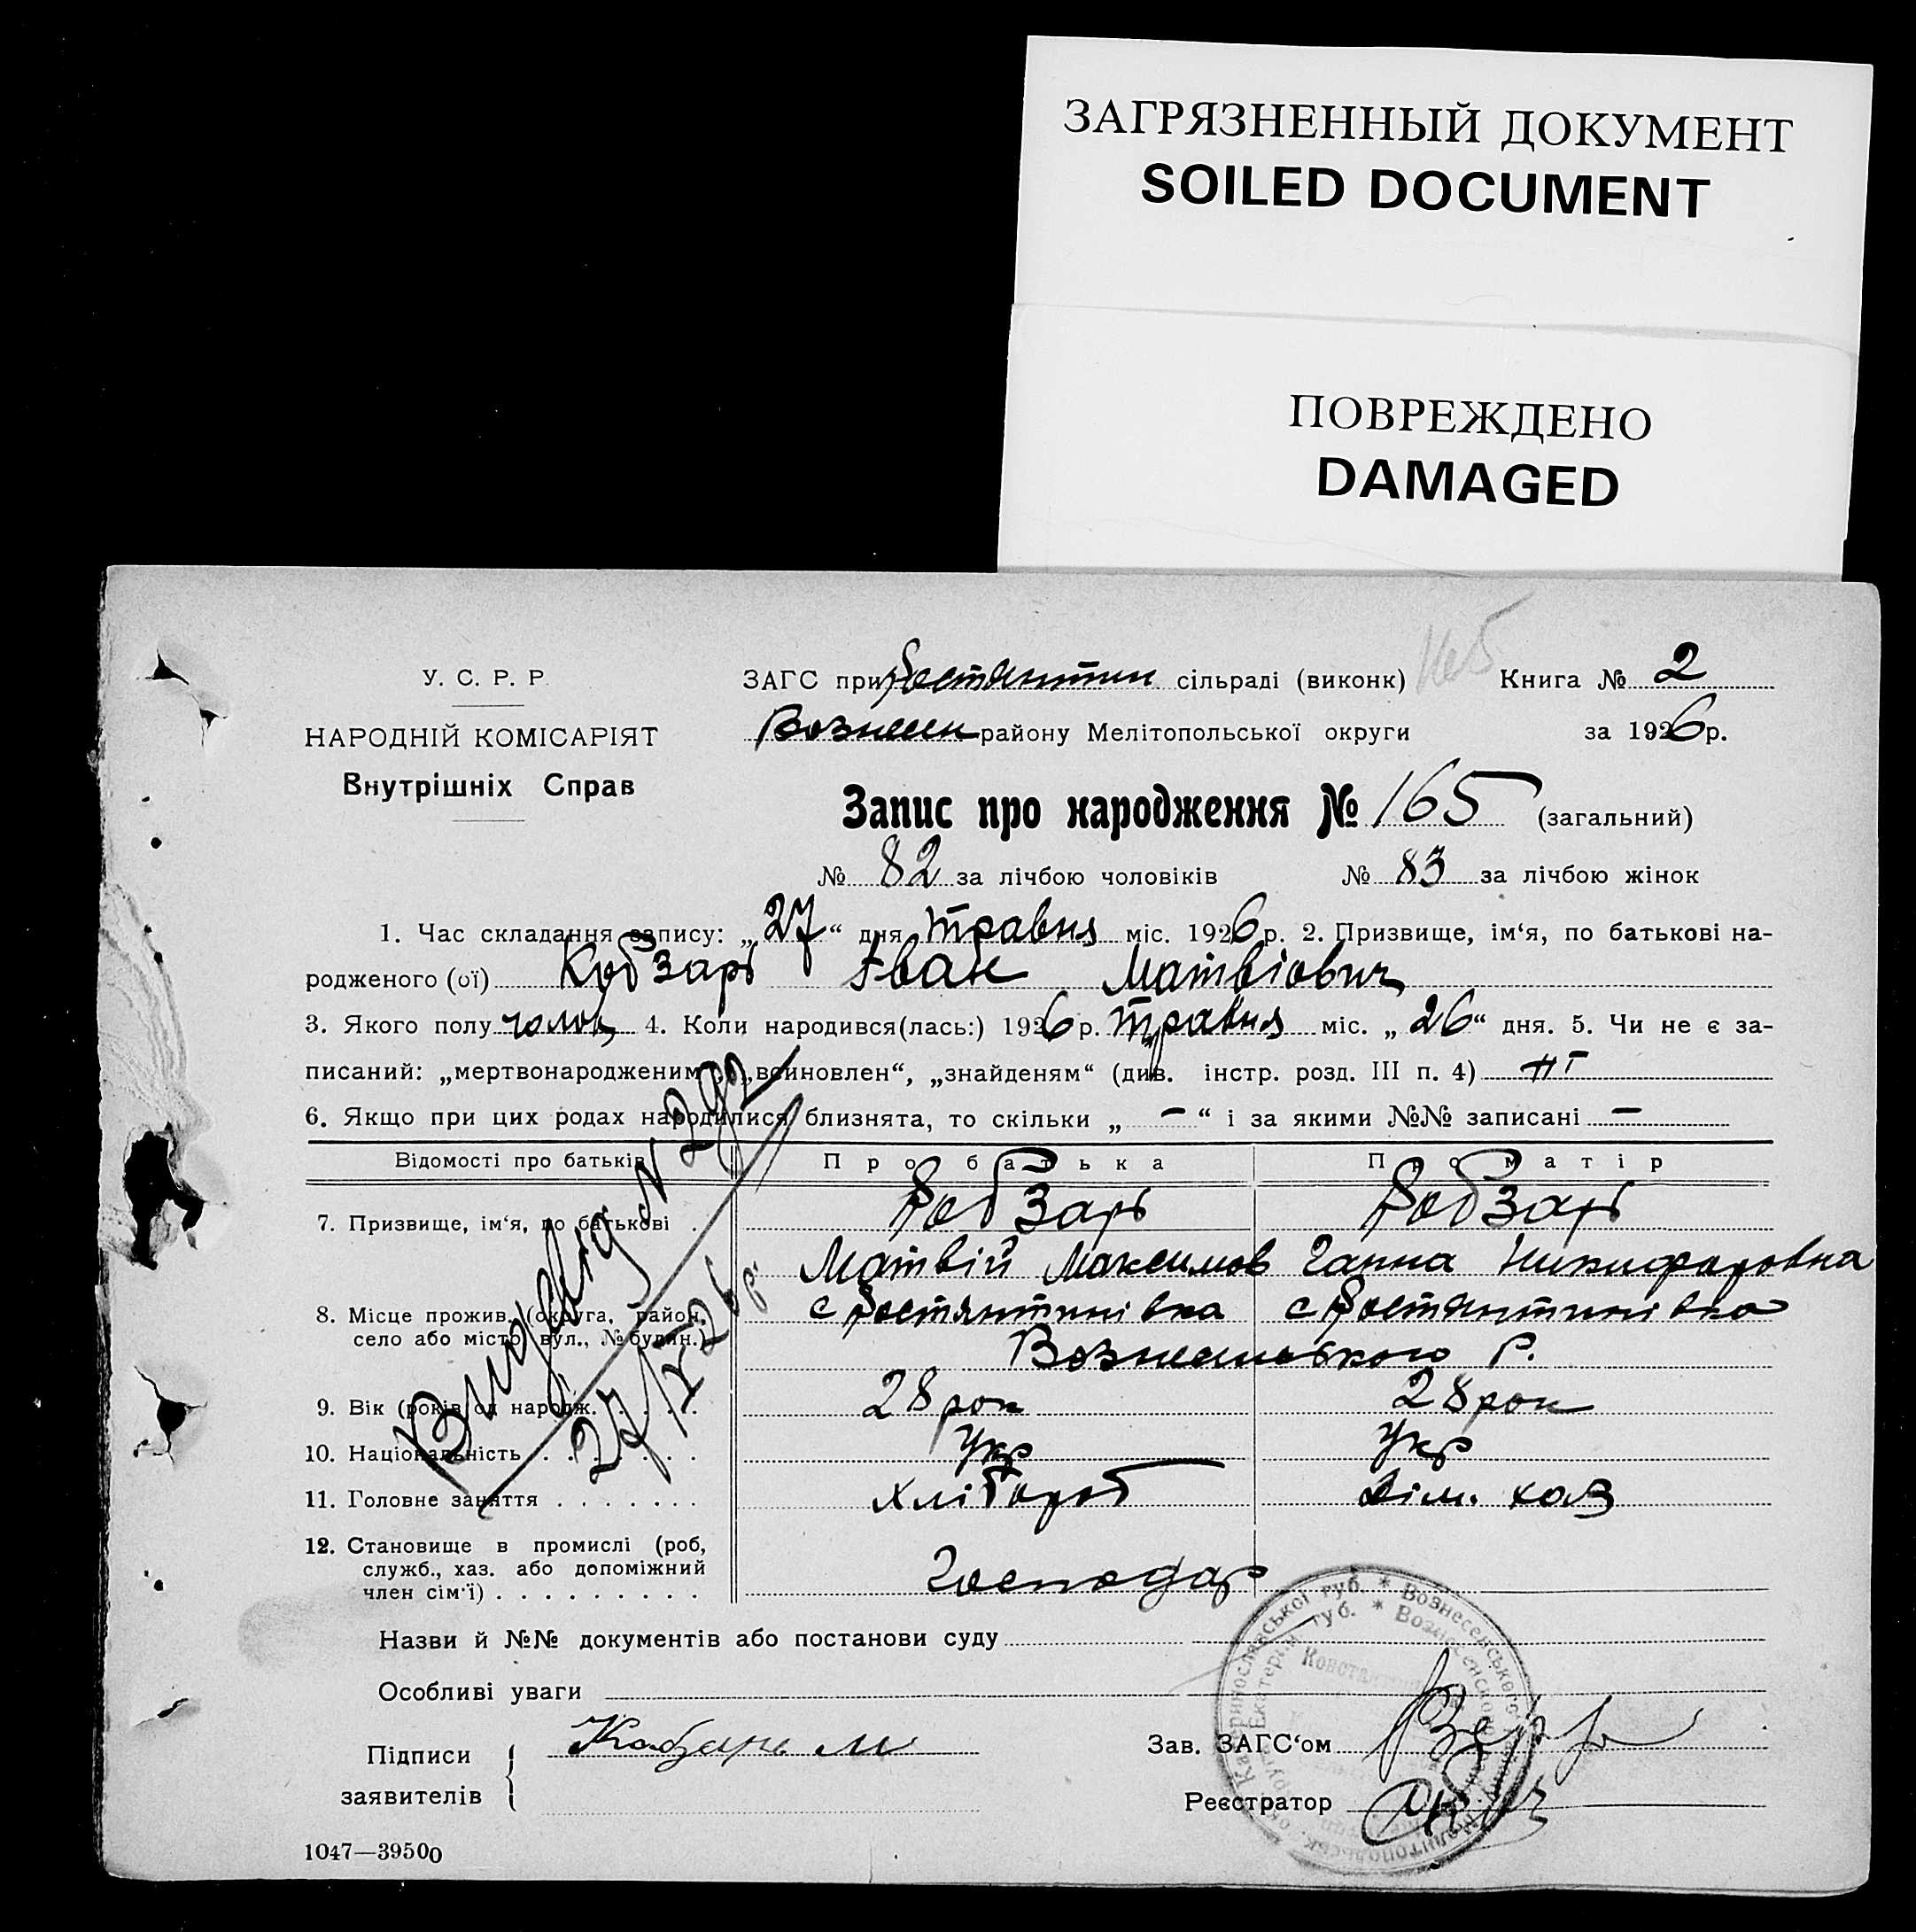 ЗАГРЯЗНЕННЫЙ ДОКУМЕНТ
SOILED DOCUMENT
ПОВРЕЖДЕНО
DAMAGED
165
У. С. Р. Р.
НАРОДНІЙ КОМІСАРІЯТ
Внутрішніх Справ
ЗАГС при Костянтин сільраді (виконк) Книга № 2
Вознесен району Мелітопольської округи за 1926 р.
Запис про народження № 165 (загальний)
№ 82 за лічбою чоловіків № 83 за лічбою жінок
1. Час складання запису: „27“ дня травня міс. 1926 р. 2. Призвище, ім‘я, по батькові на-
родженого (ої) Кобзарь Іван Матвіович
3. Якого полу чолов 4. Коли народився(лась:) 1926 р. травня міс. „26“ дня. 5. Чи не є за-
писаний: „мертвонародженим“, „всиновлен“, „знайденям“ (див. інстр. розд. III п. 4) ні
6. Якщо при цих родах народилися близнята, то скільки „—“ і за якими №№ записані —
Відомості про батьків Про батька Про матір
7. Призвище, ім‘я, по батькові . Кобзарь Кобзарь
Матвій Максимов Ганна Никифаровна
8. Місце прожив. (округа, район, с Костянтинівка с Костянтинівка
село або місто, вул., № будин.) Вознесенського р.
9. Вік (років од народж. . . . . 28 рок 28 рок
10. Національність . . . . . . . Укр Укр
11. Головне заняття . . . . . . . хлібороб дім. хаз
12. Становище в промислі (роб,
служб., хаз. або допоміжний
член сім‘ї) . . . . . . . . . Господар
Видовід N 292
27/V 26 р.
Назви й №№ документів або постанови суду
Особливі уваги
Підписи
заявителів
Кобзарь М
Зав. ЗАГС‘ом
Реєстратор
Катеринославської губ. * Вознесенського
Екатерин. губ. * Вознесенского
1047—39500